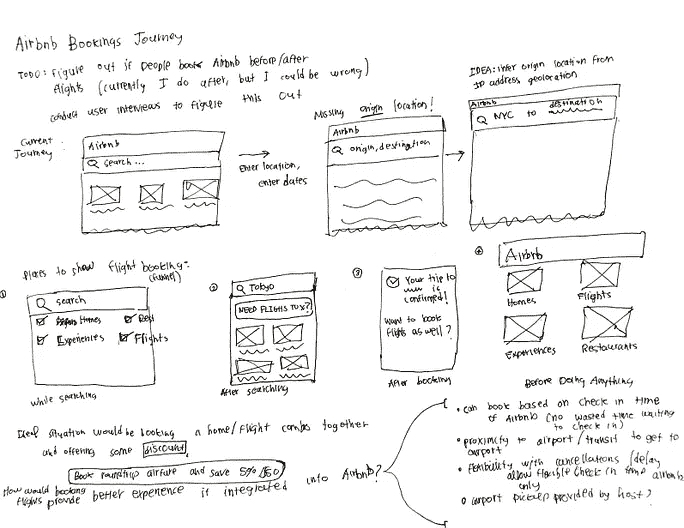 Airbnb Bookings Journey
TODO: Figure out if people book Airbnb before/after
flights (currently I do after, but I could be wrong)
conduct user interviews to figure this out
IDEA: infer origin location from
IP address geolocation
Missing origin location!
Current
Journey:
Airbnb
search...
Enter location,
enter dates
Airbnb
origin, destination
Airbnb
NYC to destination
Places to show flight booking:
(funnel)
1
search
Homes
Experiences
Flights
while searching
2
Tokyo
NEED FLIGHTS TO X?
After searching
3
Your trip to
is
confirmed!
want to book
flights as well?
After booking
4
Airbnb
Homes
Flights
Experiences
Restaurants
Before Doing Anything
Ideal situation would be booking a home/flight combo together
and offering some discount
Book roundtrip airfare and save 5%/$50
How would booking
flights provide better experience if integrated into Airbnb?
• can book based on check in time
of Airbnb (no wasted time waiting
to check in)
• proximity to airport/transit to get to
airport
• flexibility with cancellations/delay
allow flexible check in time airbnb
only
• airport pickup provided by host?